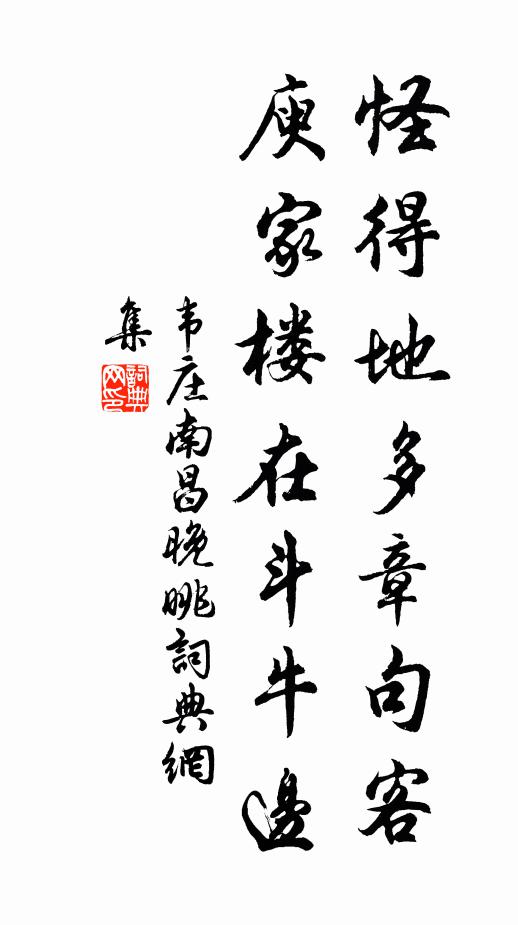 怪得地多章句客
庾家楼在斗牛邊
韦庄南昌晚眺詞典網
集
詞典網印